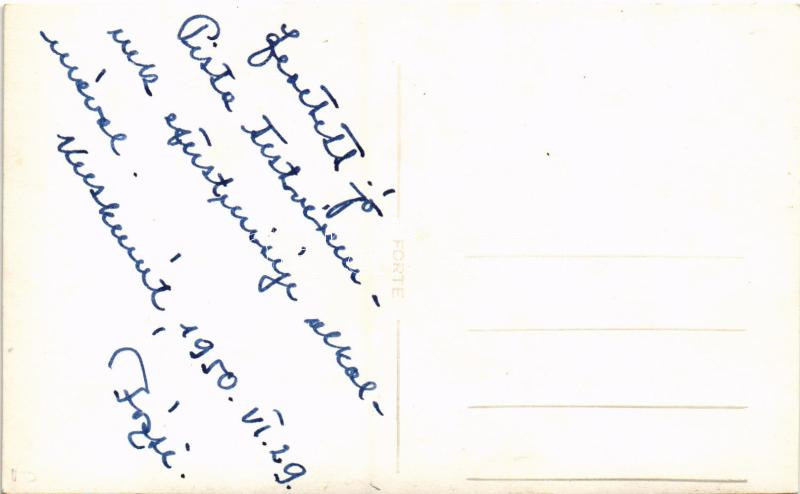 Szeretett jó
Pista testvérem-
nek ezüstmiséje alkal-
mával.
Kecskemét, 1950. VI. 29.
Józsi.
FORTE